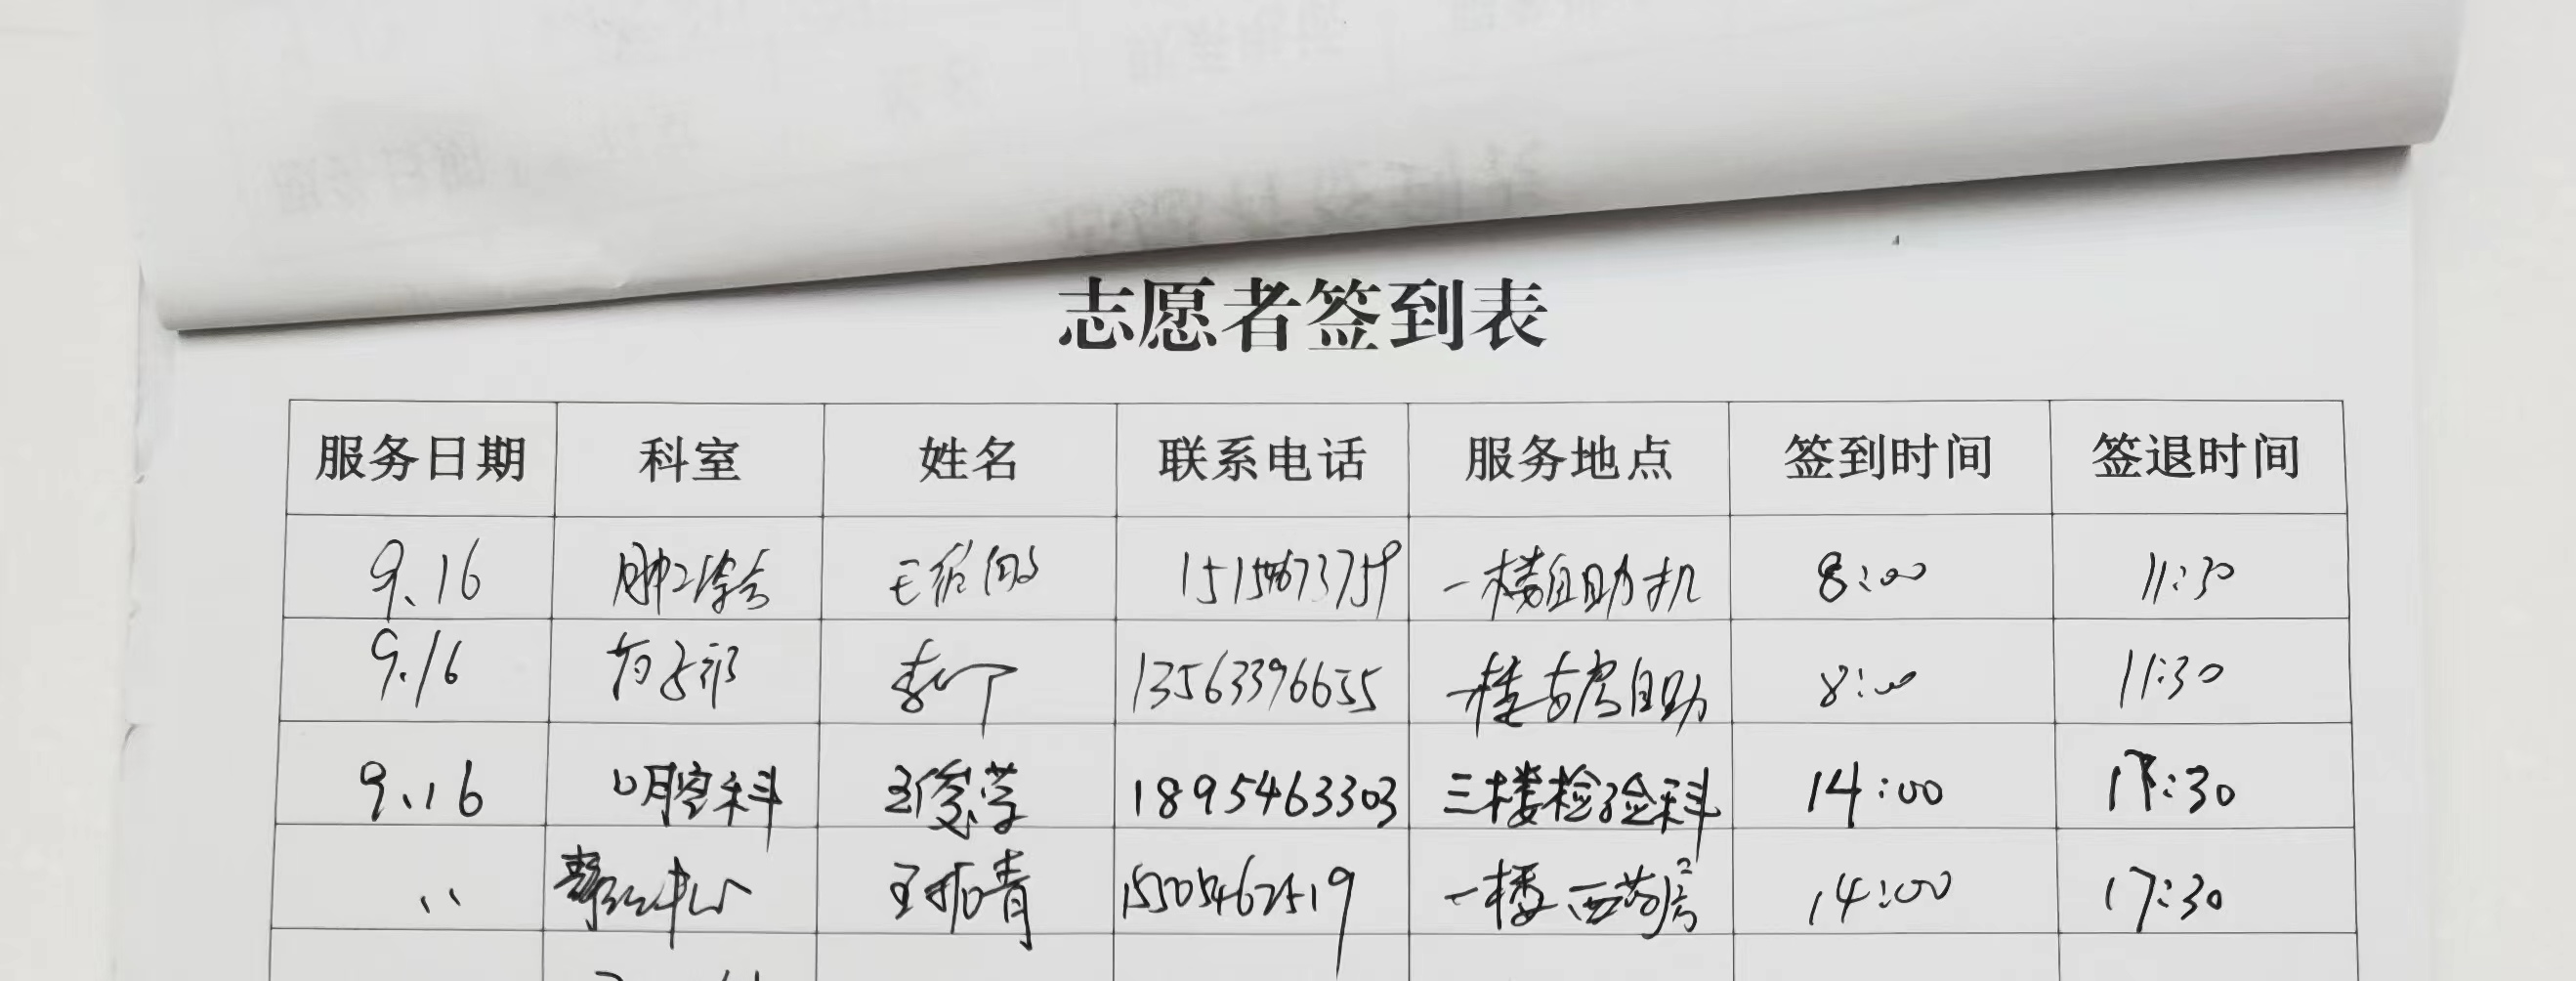 志愿者签到表
服务日期 科室 姓名 联系电话 服务地点 签到时间 签退时间
9.16 一楼自助机 8:00 11:30
9.16 13563396655 一楼药房自助 8:00 11:30
9.16 口腔科 王俊苓 1895463303 三楼检验科 14:00 17:30
〃 中心 王 青 15505462519 一楼西药房 14:00 17:30